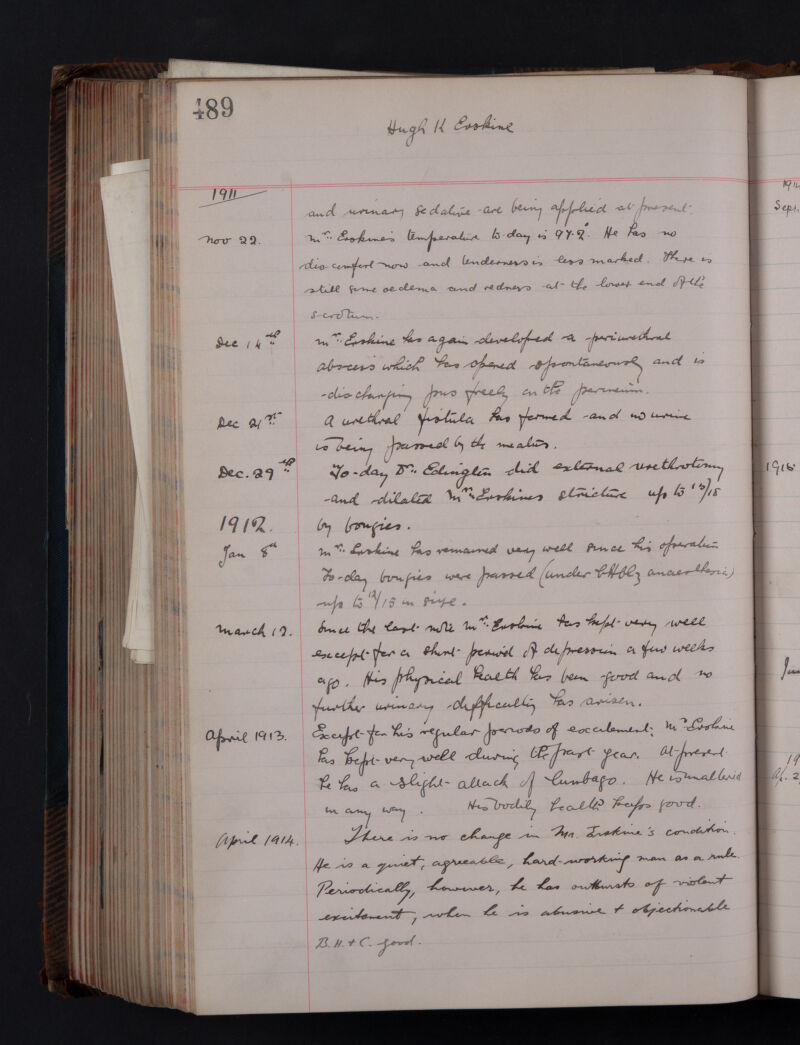 489
Hugh K Erskine
1911
and urinary sedative are being applied at present.
Nov 22. Mr. Erskine's temperature to-day is 97.2°. He has no
discomfort now and tenderness is less marked. There is
still some oedema and redness at the lower end of the
scrotum.
Dec 14th Mr. Erskine has again developed a periurethral
abscess which has opened spontaneously and is
discharging pus freely on the perineum.
Dec 21st A urethral fistula has formed and no urine
is being passed by the meatus.
Dec. 29th To-day Dr. Edington did external urethrotomy
and dilated Mr. Erskine's stricture up to 13/15
1912. by bougies.
Jan 8th Mr. Erskine has remained very well since his operation
To-day bougies were passed (under CHCl3 anaesthesia)
up to 12/15 in size.
March 12. Since the last note Mr. Erskine has kept very well
except for a short period of depression a few weeks
ago. His physical health has been good and no
further urinary difficulty has arisen.
April 1913. Except for his regular periods of excitement, Mr. Erskine
has kept very well during the past year. At present
he has a slight attack of lumbago. He is unaltered
in any way. His bodily health keeps good.
April 1914. There is no change in Mr. Erskine's condition.
He is a quiet, agreeable, hard-working man as a rule.
Periodically, however, he has outbursts of violent
excitement, when he is abusive + objectionable
B.H. + C. good.
Sept.